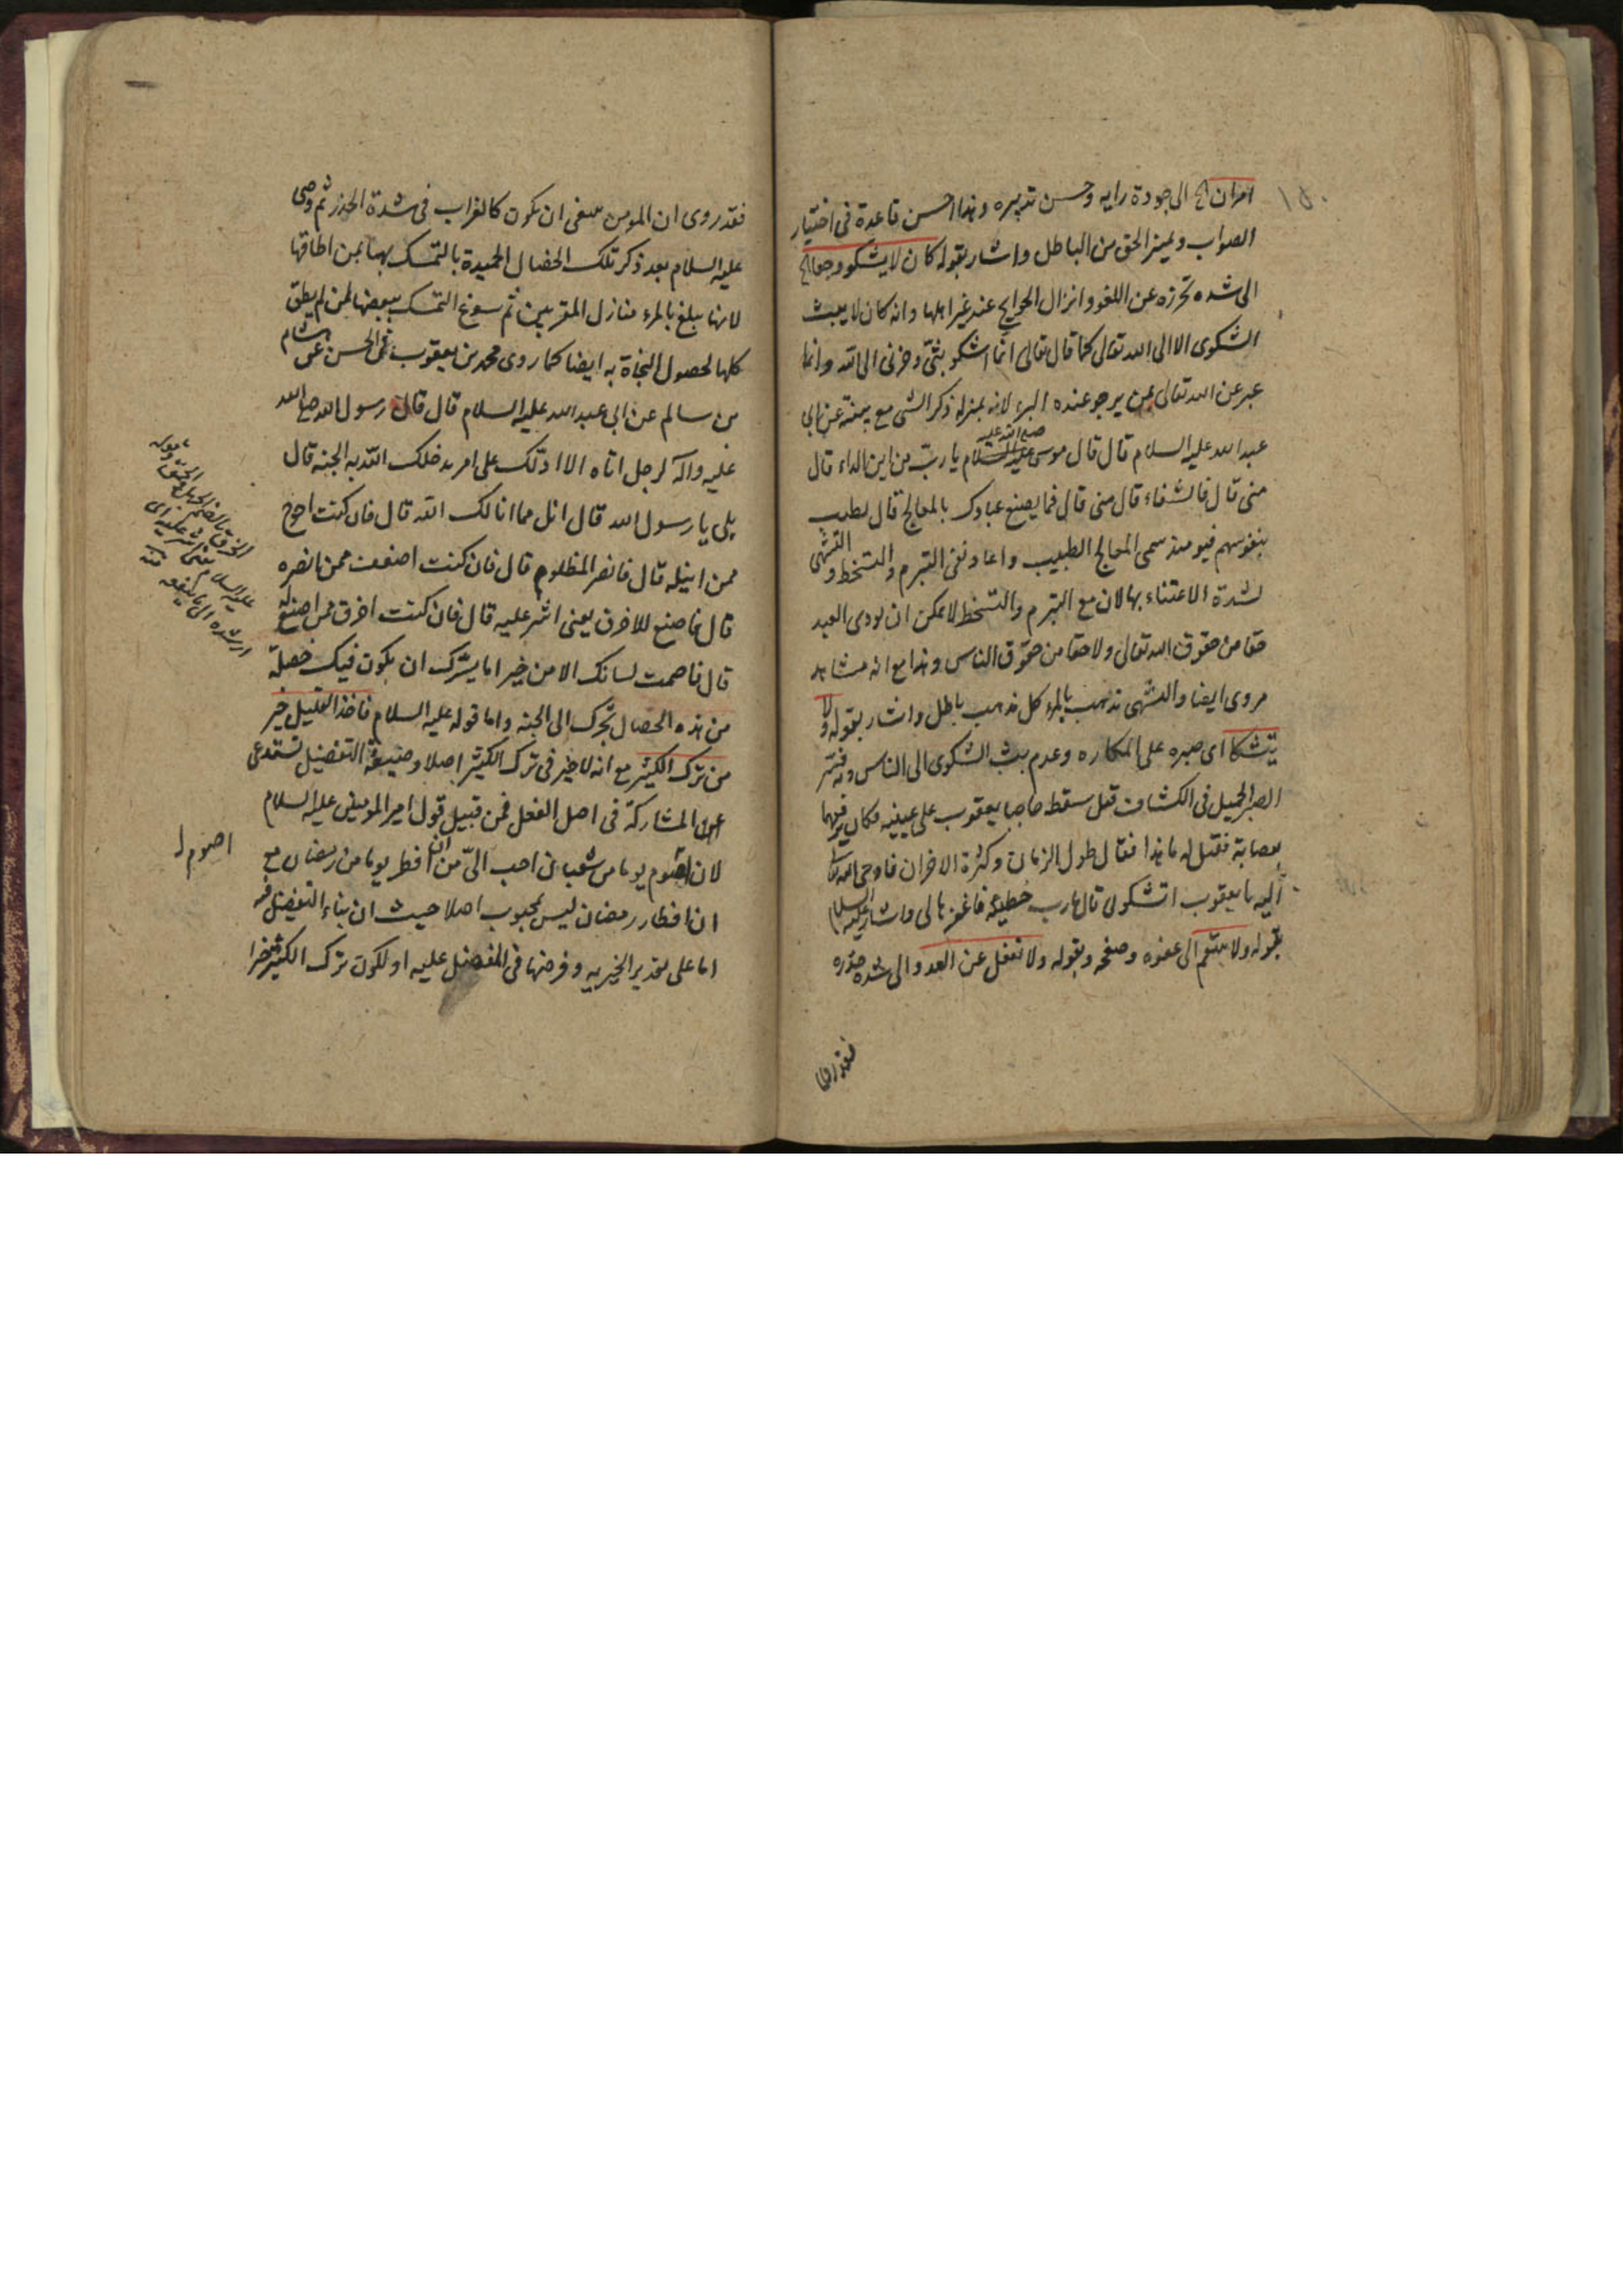 ١٥٠
امران الخ الى جودة رايه وحسن تدبيره وهذا احسن قاعدة فى اختيار
الصواب وتميز الحق من الباطل واشار بقوله كان لا يشكو وجعا الخ
الى شده تحرزه عن اللغو وانزال الحوايج عند غير اهلها وانه كان لا يبث
الشكوى الا الى الله تعالى كما قال تعالى انّما اشكو بثّى وحزنى الى الله وانما
عبر عن الله تعالى بمن يرجو عنده البرء لانه بمنزله ذكر الشى مع بينة عن ابي
عبد الله عليه السلام قال قال موسى عليه السلام يا ربّ من اين الداء قال
صلى الله عليه
منى قال فالشفاء قال منى قال فما يصنع عبادك بالمعالج قال يطيب
بنفوسهم فيومئذ سمى المعالج الطبيب واعاد نفى التبرم والتسخط والتشهى
لشدة الاعتناء بها لان مع التبرم والتسخط لا يمكن ان يودى العبد
حقا من حقوق الله تعالى ولا حقا من حقوق الناس وهذا مع انه مشاهد
مروى ايضا والتشهى تذهب بالمرء كل مذهب باطل واشار بقوله ولا
يتشكا اى صبره على المكاره وعدم بث الشكوى الى الناس وبه فسّر
الصبر الجميل فى الكشاف قيل سقط حاجبا يعقوب على عينيه فكان يرفعهما
بعصابة فقيل له ما هذا فقال طول الزمان وكثرة الاحزان فاوحى الله تعالى
اليه يا يعقوب اتشكونى قال يا رب خطيئة فاغفرها لى واشار عليه السلام
بقوله ولا ينتقم الى عفوه وصفحه وبقوله ولا تغفل عن العدو الى شده حذره
فقد روى
فقد روى ان المومن ينبغى ان يكون كالغراب فى شدة الحذر ثم وصى
عليه السلام بعد ذكر تلك الخصال الحميدة بالتمسك بها لمن اطاقها
لانها يبلغ بالمرء منازل المقربين ثم سوغ التمسك ببعضها لمن لم يطق
كلها لحصول النجاة به ايضا كما روى محمد بن يعقوب فى الحسن عن هشام
بن سالم عن ابى عبد الله عليه السلام قال قال رسول الله صلى الله
عليه وآله لرجل اتاه الا ادلّك على امر يدخلك الله به الجنة قال
بلى يا رسول الله قال انل مما انالك الله قال فان كنت احوج
ممن انيله قال فانصر المظلوم قال فان كنت اضعف ممن انصره
قال فاصنع للاخرق يعنى اشر عليه قال فان كنت اخرق ممن اصنع له
قال فاصمت لسانك الا من خير اما يسرّك ان يكون فيك خصلة
من هذه الخصال تجرّك الى الجنة واما قوله عليه السلام فاخذ القليل خير
من ترك الكثير مع انه لا خير فى ترك الكثير اصلا وصيغة التفضيل تستدعى
المشاركة فى اصل الفعل فمن قبيل قول امير المومنين عليه السلام
لان اصوم يوما من شعبان احب الىّ من ان افطر يوما من رمضان مع
ان افطار رمضان ليس بمحبوب اصلا حيث ان بناء التفضيل فيه
اما على تقدير الخيريه وفرضها فى المفضل عليه او لكون ترك الكثير خيرا
اصوم